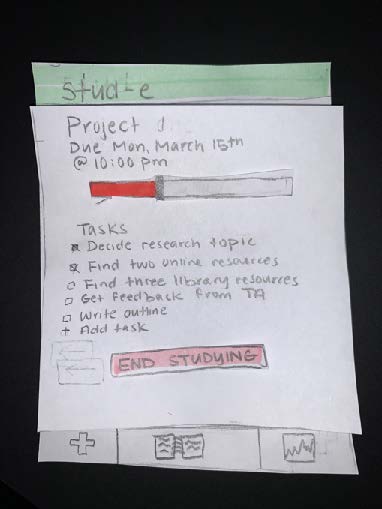 Project
Due Mon, March 15th
@ 10:00 pm
Tasks
Decide research topic
Find two online resources
Find three library resources
Get feedback from TA
Write outline
+ Add task
END STUDYING